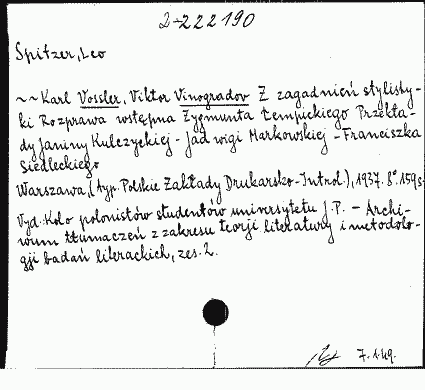 2-222190
Spitzer, Leo
~~ Karl Vossler, Viktor Vinogradov Z zagadnień stylisty-
ki Rozprawa wstępna Zygmunta Łempickiego Przekła-
dy Janiny Kulczyckiej - Jadwigi Markowskiej - Franciszka
Siedleckiego
Warszawa, (typ. Polskie Zakłady Drukarsko-Introl.), 1937. 8° 159 s.
Wyd. Koło polonistów studentów uniwersytetu J.P. – Archi-
wum tłumaczeń z zakresu teorji literatury i metodolo-
gji badań literackich, zes. 2.
7.1.49.